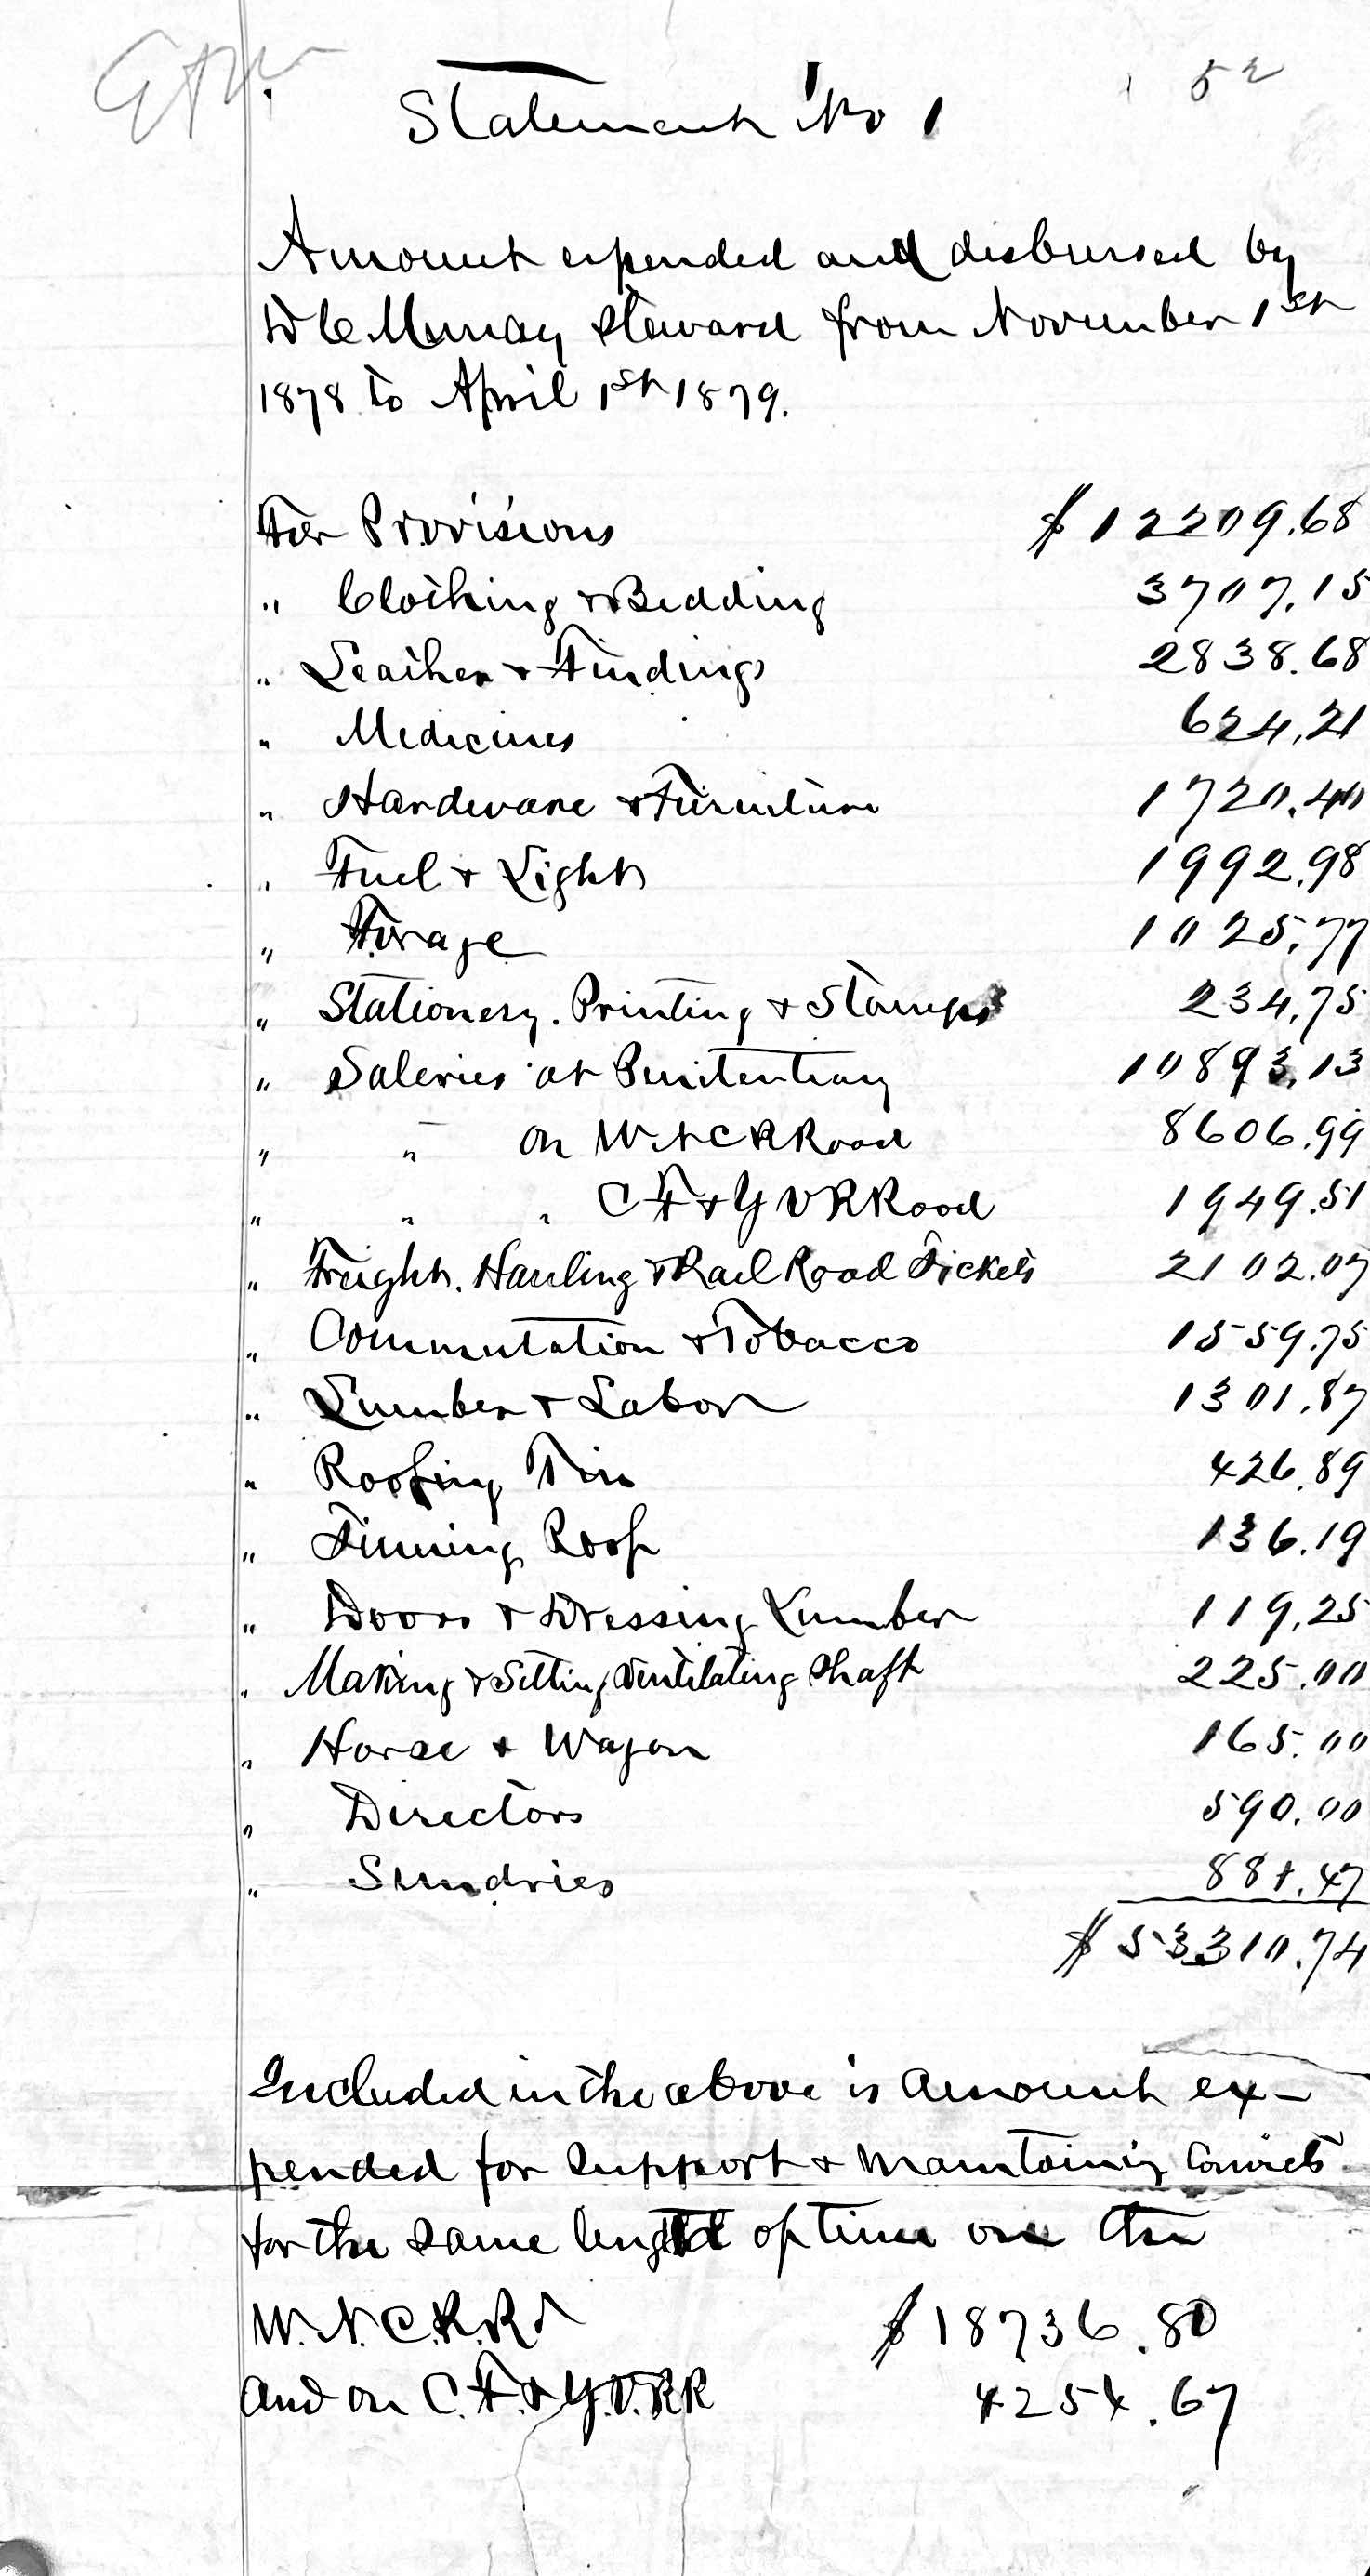 Statement No 1
52
Amount expended and disbursed by
W C Murray Steward from November 1st
1878 to April 1st 1879.
For Provisions $12209.68
" Clothing & Bedding 3707.15
" Leather & Findings 2838.68
" Medicines 624.21
" Hardware & Furniture 1720.40
" Fuel & Light 1992.98
" Forage 1025.77
" Stationery. Printing & Stamps 234.75
" Saleries at Penitentiary 10893.13
" " on W N C R Road 8606.99
" " " C F & Y V R Road 1949.51
" Freight. Hauling & Rail Road Tickets 2102.07
" Commutation & Tobacco 1559.75
" Lumber & Labor 1301.87
" Roofing Tin 426.89
" Tinning Roof 136.19
" Doors & Dressing Lumber 119.25
" Making & Setting Ventilating Shaft 225.00
" Horse & Wagon 165.00
" Directors 590.00
" Sundries 881.47
$53310.74
Included in the above is amount ex-
pended for Support & Maintaining Convicts
for the same length of time on the
W. N. C. R. Rd $18736.80
and on C. F. & Y. V. R R 4254.67